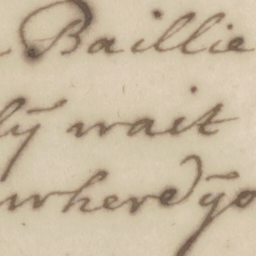 Baillie
ly wait
where yo